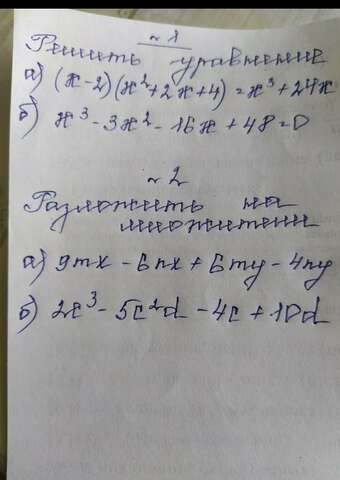 № 1
Решить уравнение
а) (x-2)(x²+2x+4)=x³+24x
б) x³-3x²-16x+48=0
№ 2
Разложить на
множители
а) 9mx-6nx+6my-4ny
б) 2c³-5c²d-4c+10d